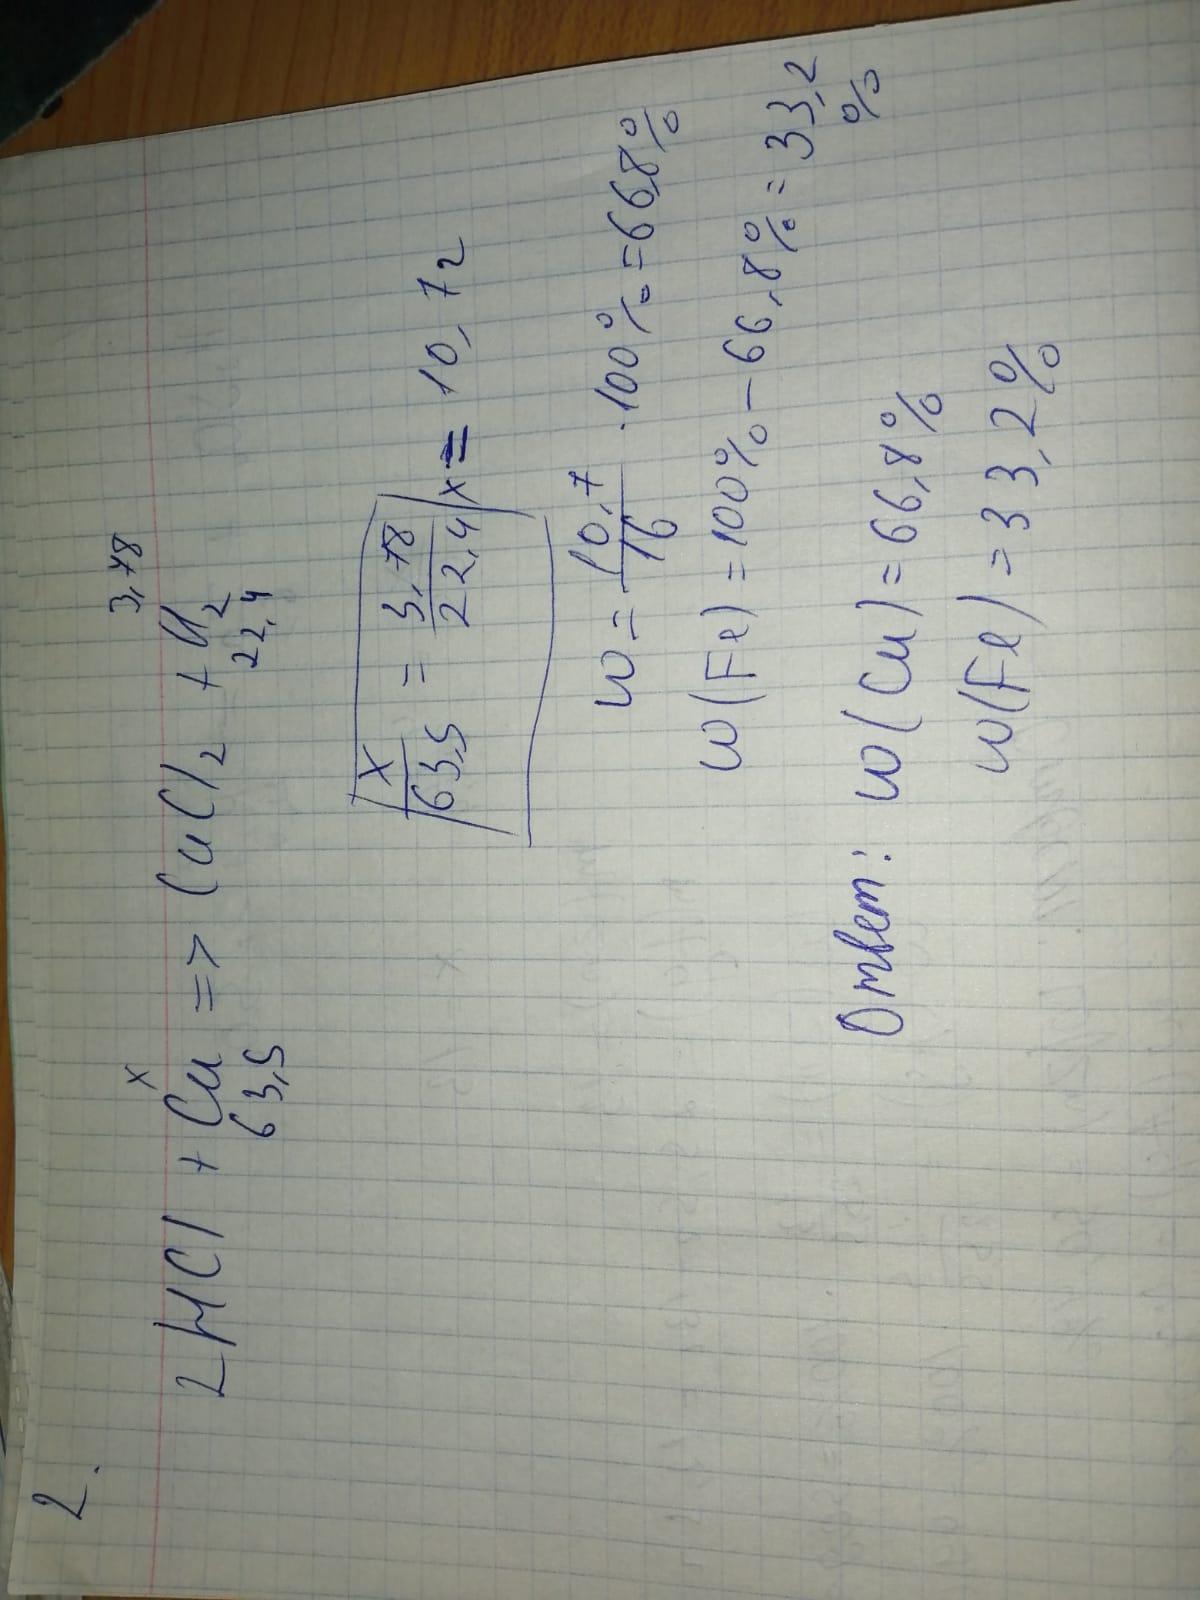 2.
x 3,78
2HCl + Cu => CuCl2 + H2
63,5 22,4
x/63,5 = 3,78/22,4 x = 10,7г
ω = 10,7/16 · 100% = 66,8%
ω(Fe) = 100% - 66,8% = 33,2
%
Ответ: ω(Cu) = 66,8%
ω(Fe) = 33,2%